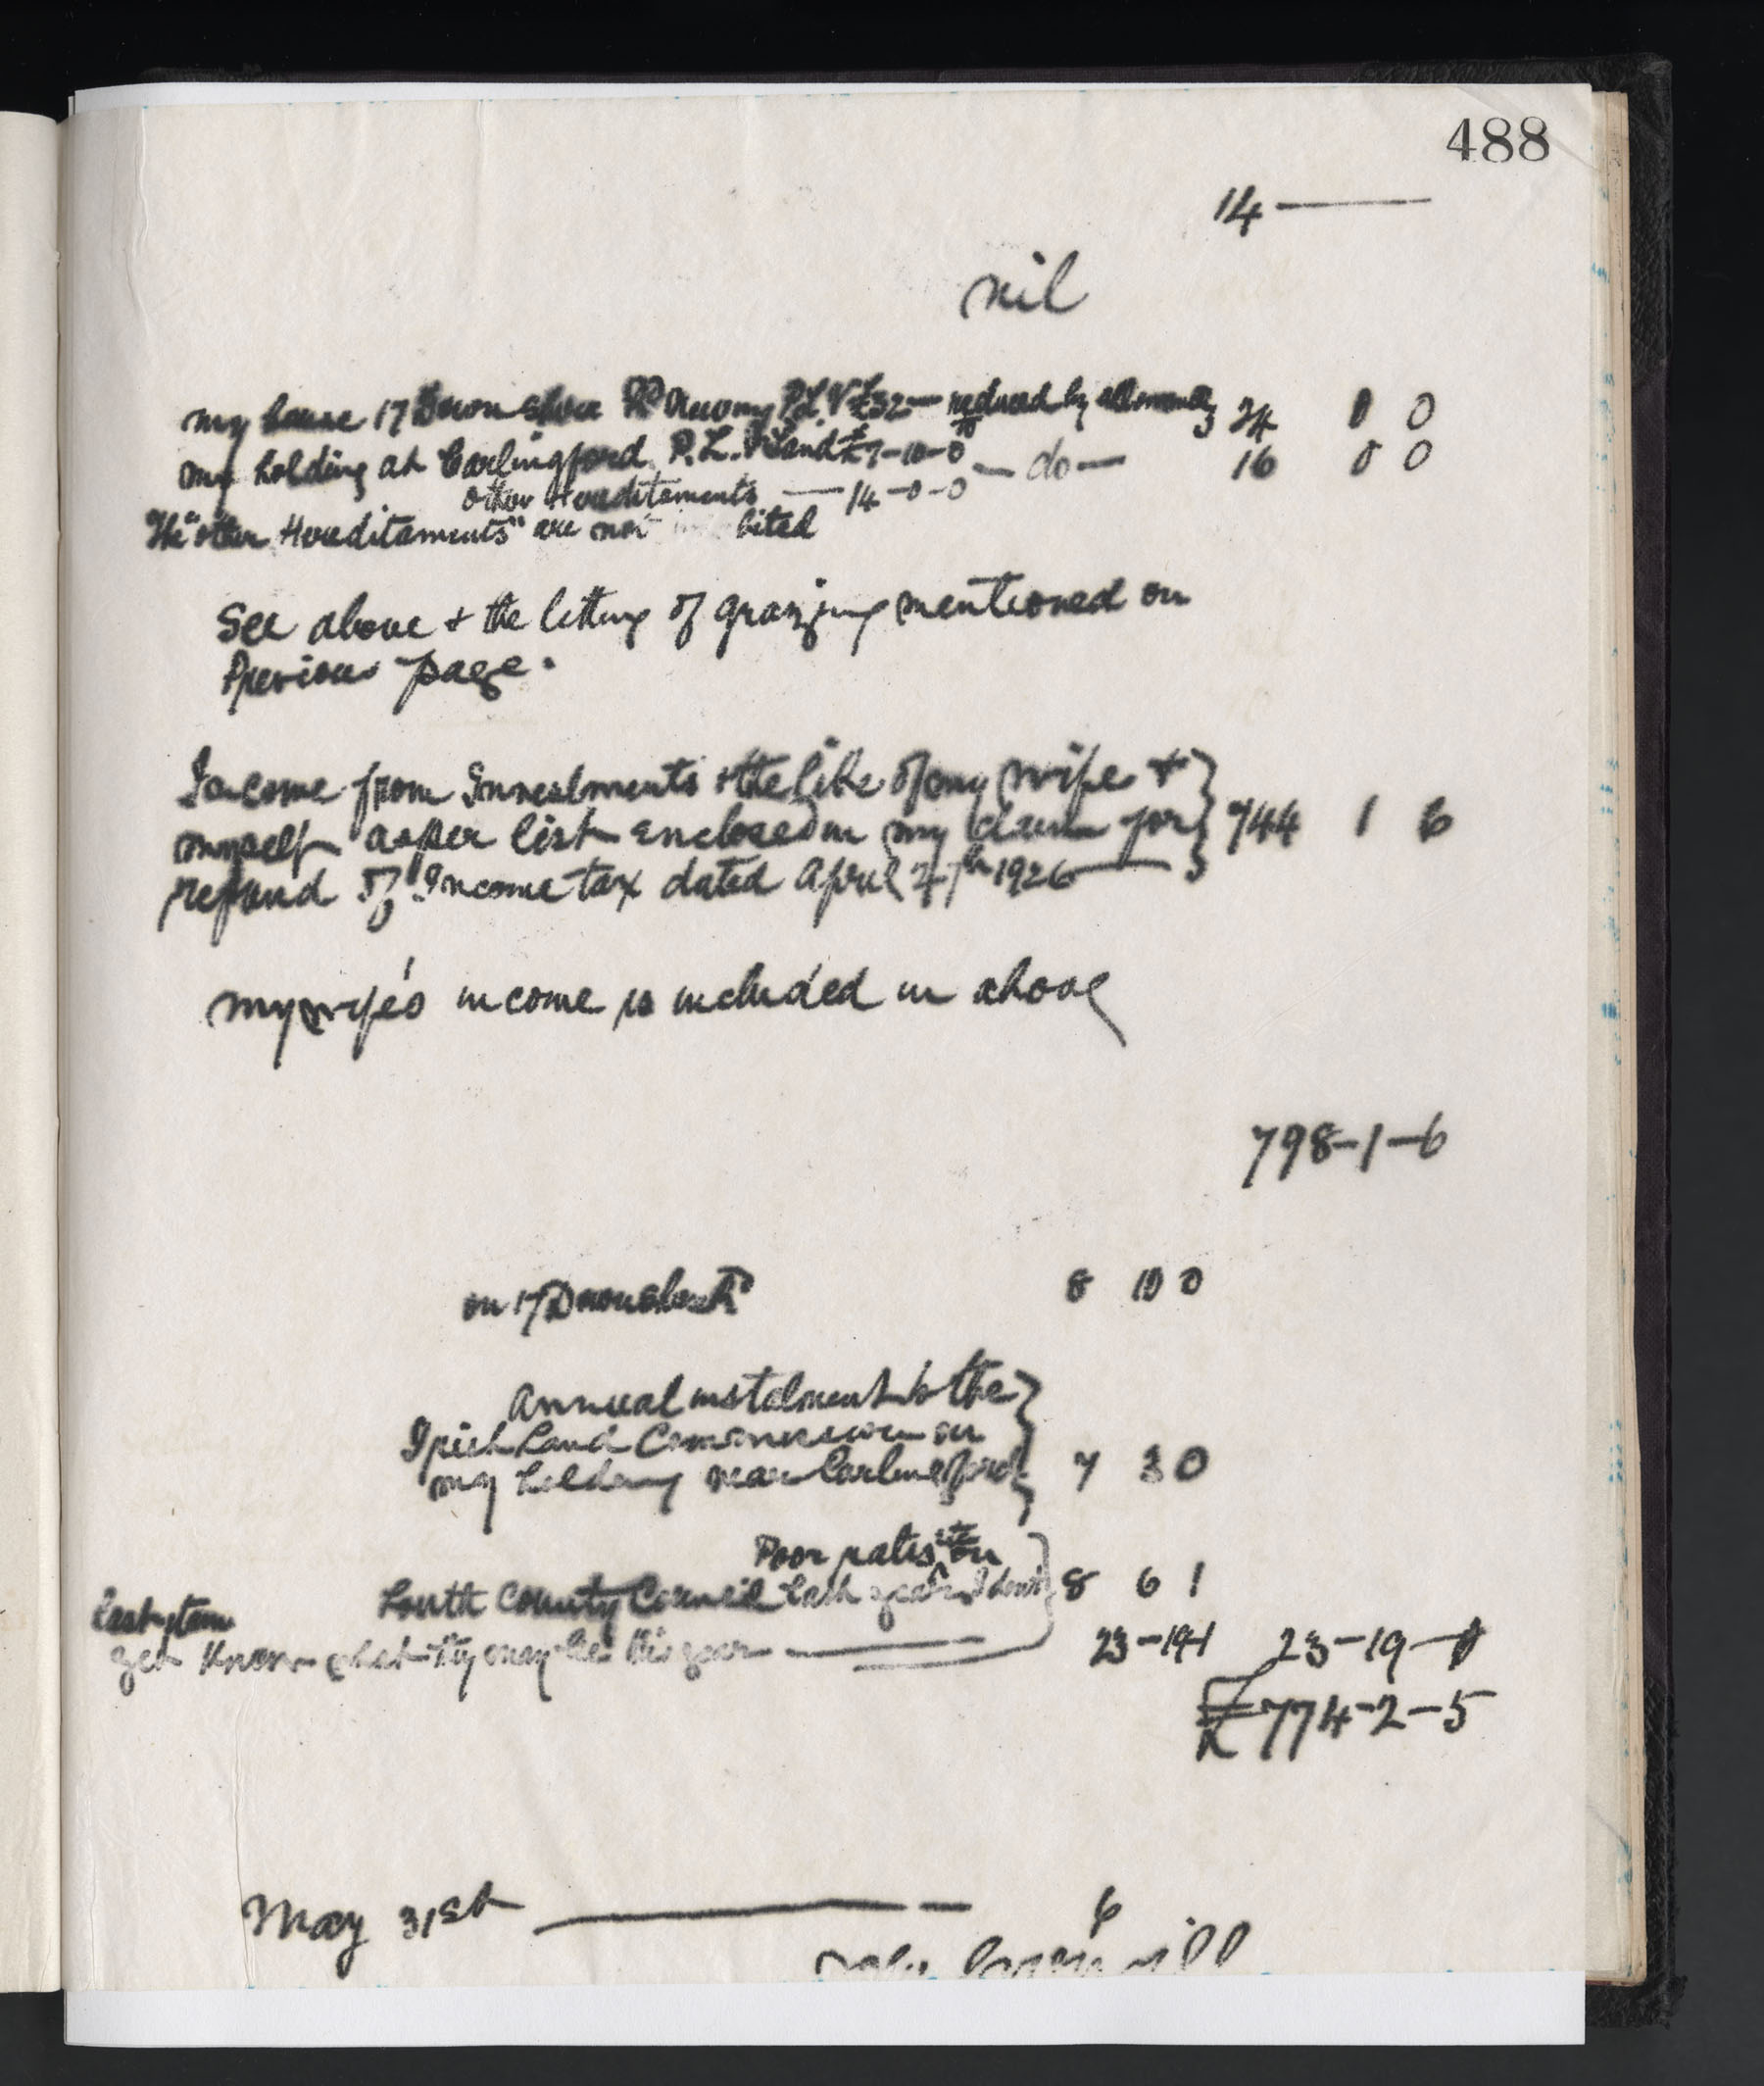 488
14 ———
nil
my house 17 Downshire Rd Newry P.L.V £32 — reduced by allowances 24 0 0
to
my holding at Carlingford P.L.V Land £7-10-0 — do — 16 0 0
other Hereditaments — 14-0-0
The "other Hereditaments" are not bited
See above + the letting of grazing mentioned on
Previous page.
Income from Investments + the like of my wife +
myself as per list enclosed in my claim for 744 1 6
refund of Income tax dated April 27th 1926 ——
my wife's income is included in above
798-1-6
on 17 Downshire Rd 8 10 0
Annual instalment to the
Irish Land Commission on
my holding near Carlingford 7 3 0
Poor rates etc on
Louth County Council last year I dont 8 6 1
last item
yet know what they may be this year —— 23-19-1 23-19-1
£774-2-5
May 31st ——— — 6